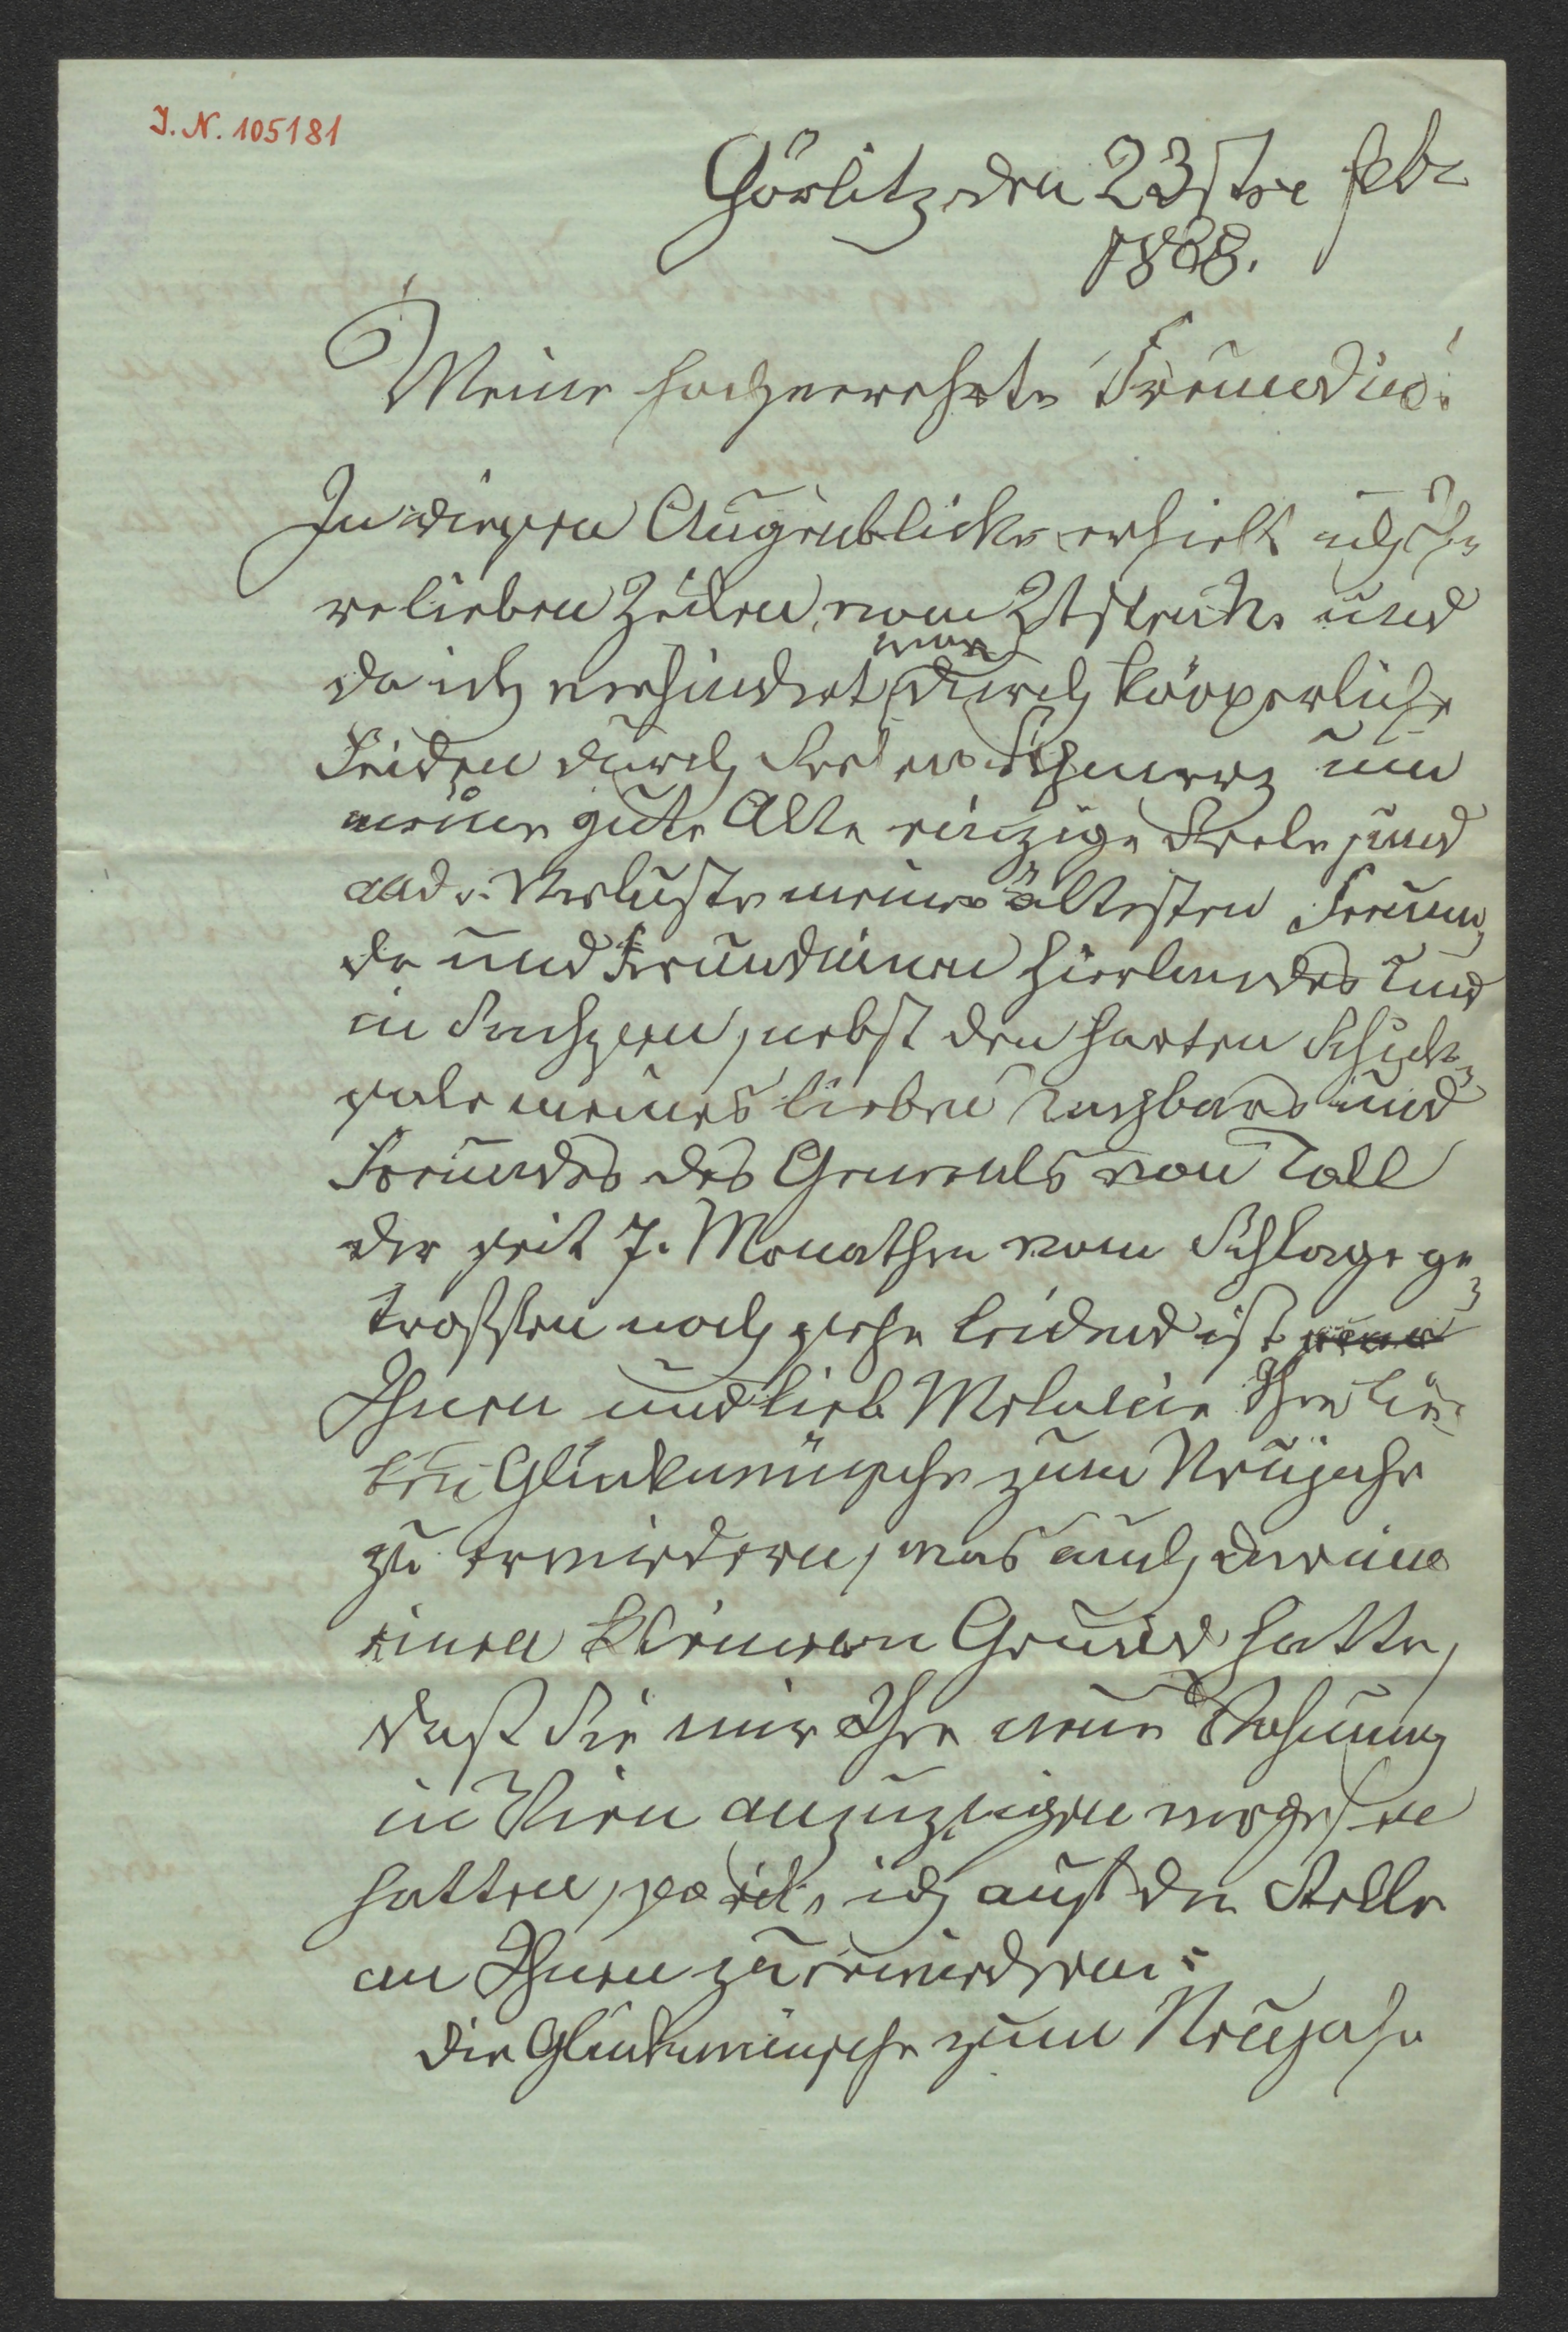 I. N. 105181
Görlitz den 23sten Febr
1868.
Meine hochverehrte Freundin!
In diesem Augenblicke erhielt ich Ih¬
re lieben Zeilen, vom 21sten und
da ich verhindert war durch körperliche
Leiden durch Seelen Schmerz um
meine gute Alte einzige Seele, und
Verluste meiner ältesten Freun¬
de und Freundinnen hierlandes und
in Sachsen, nebst den harten Schick¬
sale meines lieben Nachbars und
Freundes des Generals von Toll
der seit 7. Monathen vom Schlage ge¬
troffen noch sehr leidend ist
Ihnen und lieb Melanie Ihre lie¬
ben Glückwünsche zum Neujahr
zu erwiedern, was auch darinn
einen kleineren Grund hatte,
daß Sie mir Ihre neue Wohnung
in Wien anzuzeigen vergessen
hatten, so eile ich auf der Stelle
an Ihnen zu erwiedern:
die Glückwünsche zum Neujahr